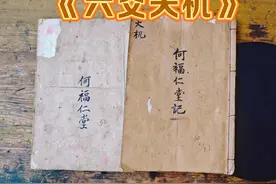 《六爻天机》
天机
何福仁堂記
何福仁堂